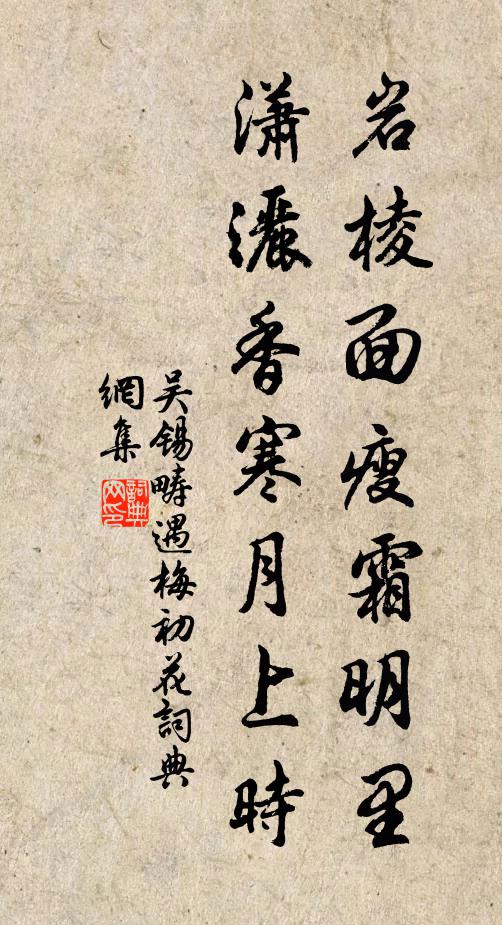 岩棱面瘦霜明里
潇灑香寒月上時
吴锡畴遇梅初花詞典
網集
詞典
网印